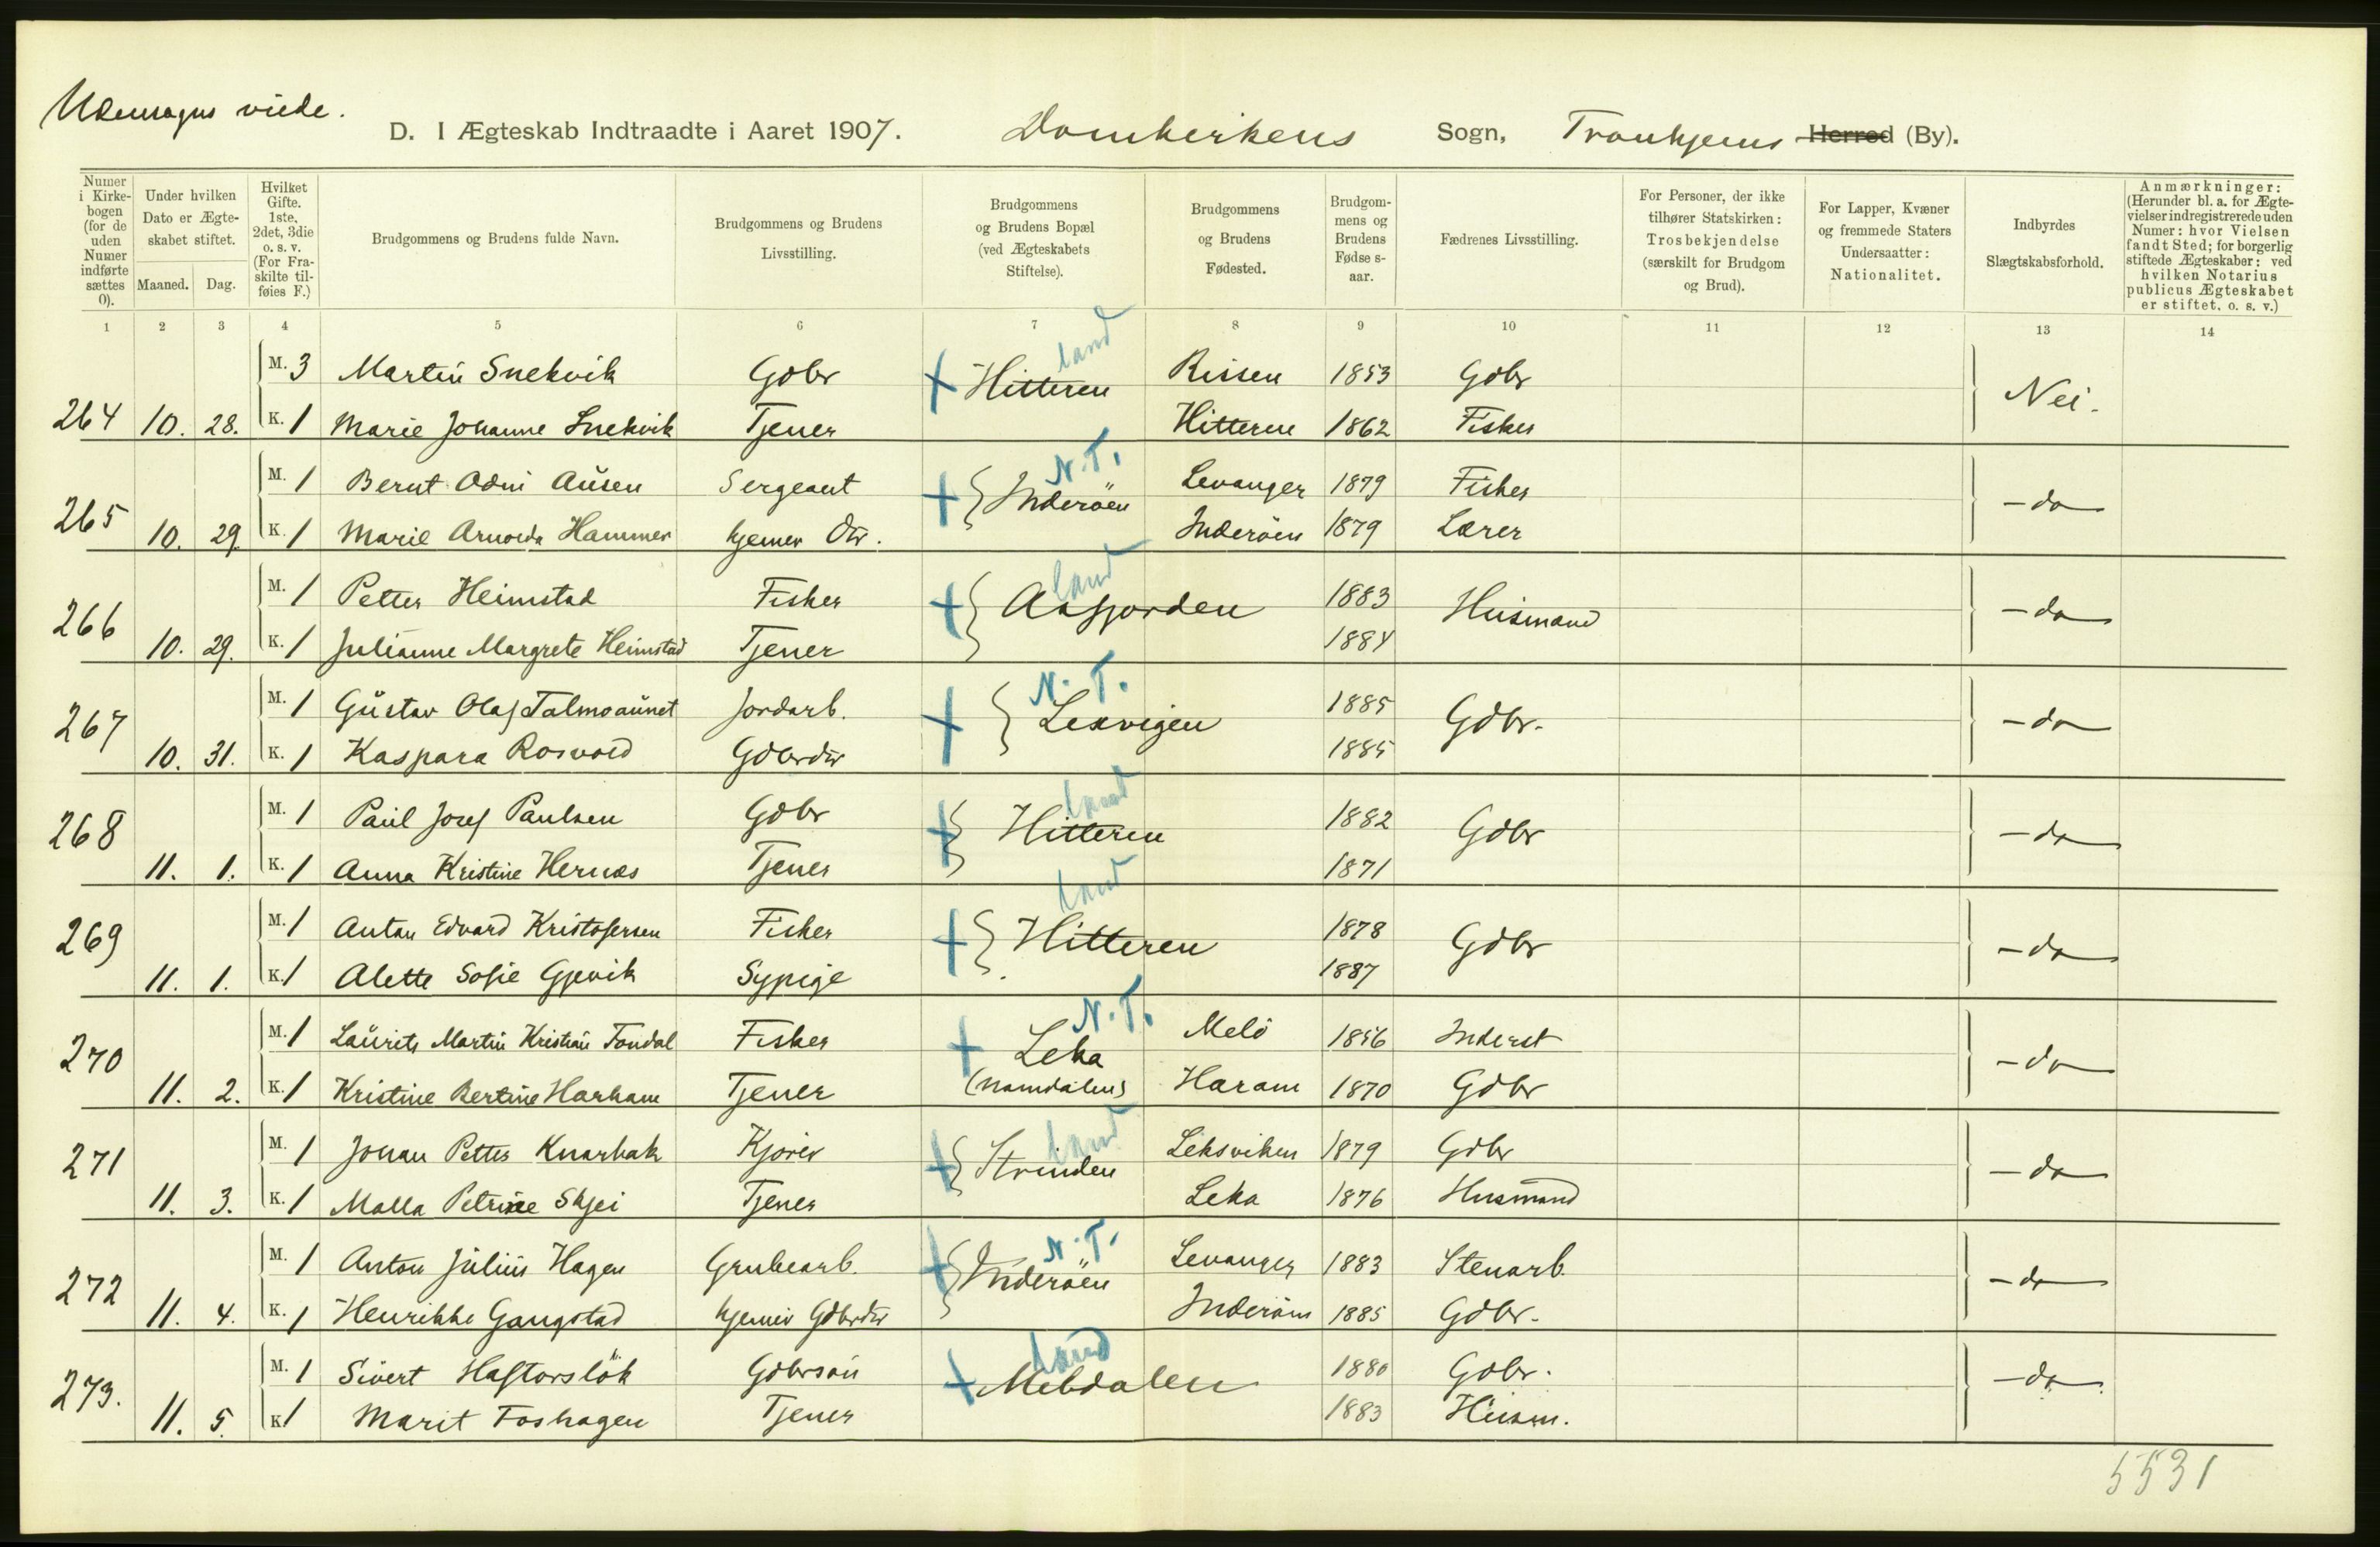 Udensogns viede.
D. I Ægteskab Indtraadte i Aaret 1907. Domkirkens Sogn, Tronhjems Herred (By).
Numer i Kirkebogen (for de uden Numer indførte sættes 0). | Under hvilken Dato er Ægteskabet stiftet. Maaned. Dag. | Hvilket Gifte. 1ste, 2det, 3die o. s. v. (For Fraskilte tilføies F.) | Brudgommens og Brudens fulde Navn. | Brudgommens og Brudens Livsstilling. | Brudgommens og Brudens Bopæl (ved Ægteskabets Stiftelse). | Brudgommens og Brudens Fødested. | Brudgommens og Brudens Fødselsaar. | Fædrenes Livsstilling. | For Personer, der ikke tilhører Statskirken: Trosbekjendelse (særskilt for Brudgom og Brud). | For Lapper, Kvæner og fremmede Staters Undersaatter: Nationalitet. | Indbyrdes Slægtskabsforhold. | Anmærkninger: (Herunder bl. a. for Ægtevielser indregistrerede uden Numer: hvor Vielsen fandt Sted; for borgerlig stiftede Ægteskaber: ved hvilken Notarius publicus Ægteskabet er stiftet, o. s. v.)
1 2 3 4 5 6 7 8 9 10 11 12 13 14
M. 3 Martin Snekvik Gdbr + Hitteren land Rissen 1853 Gdbr Nei.
264 10. 28. K. 1 Marie Johanne Snekvik Tjener Hitteren 1862 Fisker
M. 1 Bernt Odin Ausen Sergeant + Inderöen N.T. Levanger 1879 Fisker - do
265 10. 29. K. 1 Marie Arnolda Hammer hjemev. Dtr. Inderöen 1879 Lærer
M. 1 Petter Heimstad Fisker + Aafjorden land 1883 Husmand - do
266 10. 29. K. 1 Julianne Margrete Heimstad Tjener 1884
M. 1 Gustav Olaf Talmoaunet Jordarb. + Lexvigen N.T. 1885 Gdbr. - do
267 10. 31. K. 1 Kaspara Rosvold Gdbrdtr 1885
M. 1 Paul Josef Paulsen Gdbr + Hitteren land 1882 Gdbr - do
268 11. 1. K. 1 Anna Kristine Hernæs Tjener 1871
M. 1 Anton Edvard Kristofersen Fisker + Hitteren land 1878 Gdbr - do
269 11. 1. K. 1 Alette Sofie Gjevik Sypige 1887
M. 1 Laurits Martin Kristian Tondal Fisker + Leka N.T. Melö 1856 Inderst - do
270 11. 2. K. 1 Kristine Bertine Harham Tjener (Namdalen) Haram 1870 Gdbr
M. 1 Johan Petter Knarbak Kjører + Strinden land Leksviken 1879 Gdbr - do
271 11. 3. K. 1 Malla Petrine Skjei Tjener Leka 1876 Husmand
M. 1 Anton Julius Hagen Grubearb. + Inderöen N.T. Levanger 1883 Stenarb. - do
272 11. 4. K. 1 Henrikke Gangstad hjemev Gdbrdtr Inderöen 1885 Gdbr.
M. 1 Sivert Haftorslök Gdbrsön + Meldalen land 1880 Gdbr. - do
273. 11. 5. K. 1 Marit Foshagen Tjener 1883 Husm.
5531